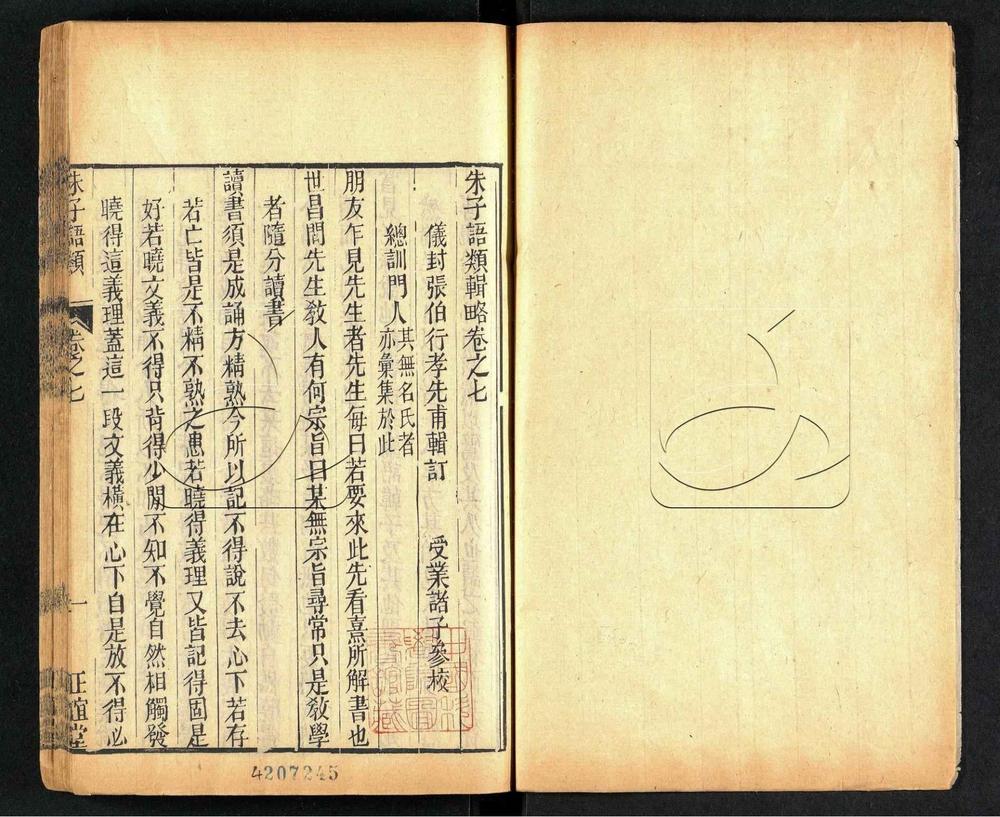 朱子語類輯略卷之七
儀封張伯行孝先甫輯訂 受業諸子參校
總訓門人其無名氏者亦彙集於此
朋友乍見先生者先生每曰若要來此先看熹所解書也
世昌問先生教人有何宗旨曰某無宗旨尋常只是教學
者隨分讀書
讀書須是成誦方精熟今所以記不得說不去心下若存
若亡皆是不精不熟之患若曉得義理又皆記得固是
好若曉文義不得只背得少閒不知不覺自然相觸發
曉得這義理蓋這一段文義橫在心下自是放不得必
朱子語類 卷之七 一 正誼堂
4207245